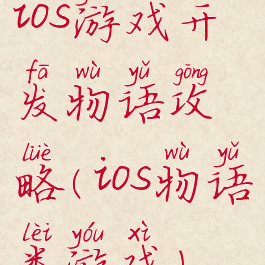 ios游戏开
fā wù yǔ gōng
发物语攻
lüè wù yǔ
略(ios物语
lèi yóu xì
类游戏)